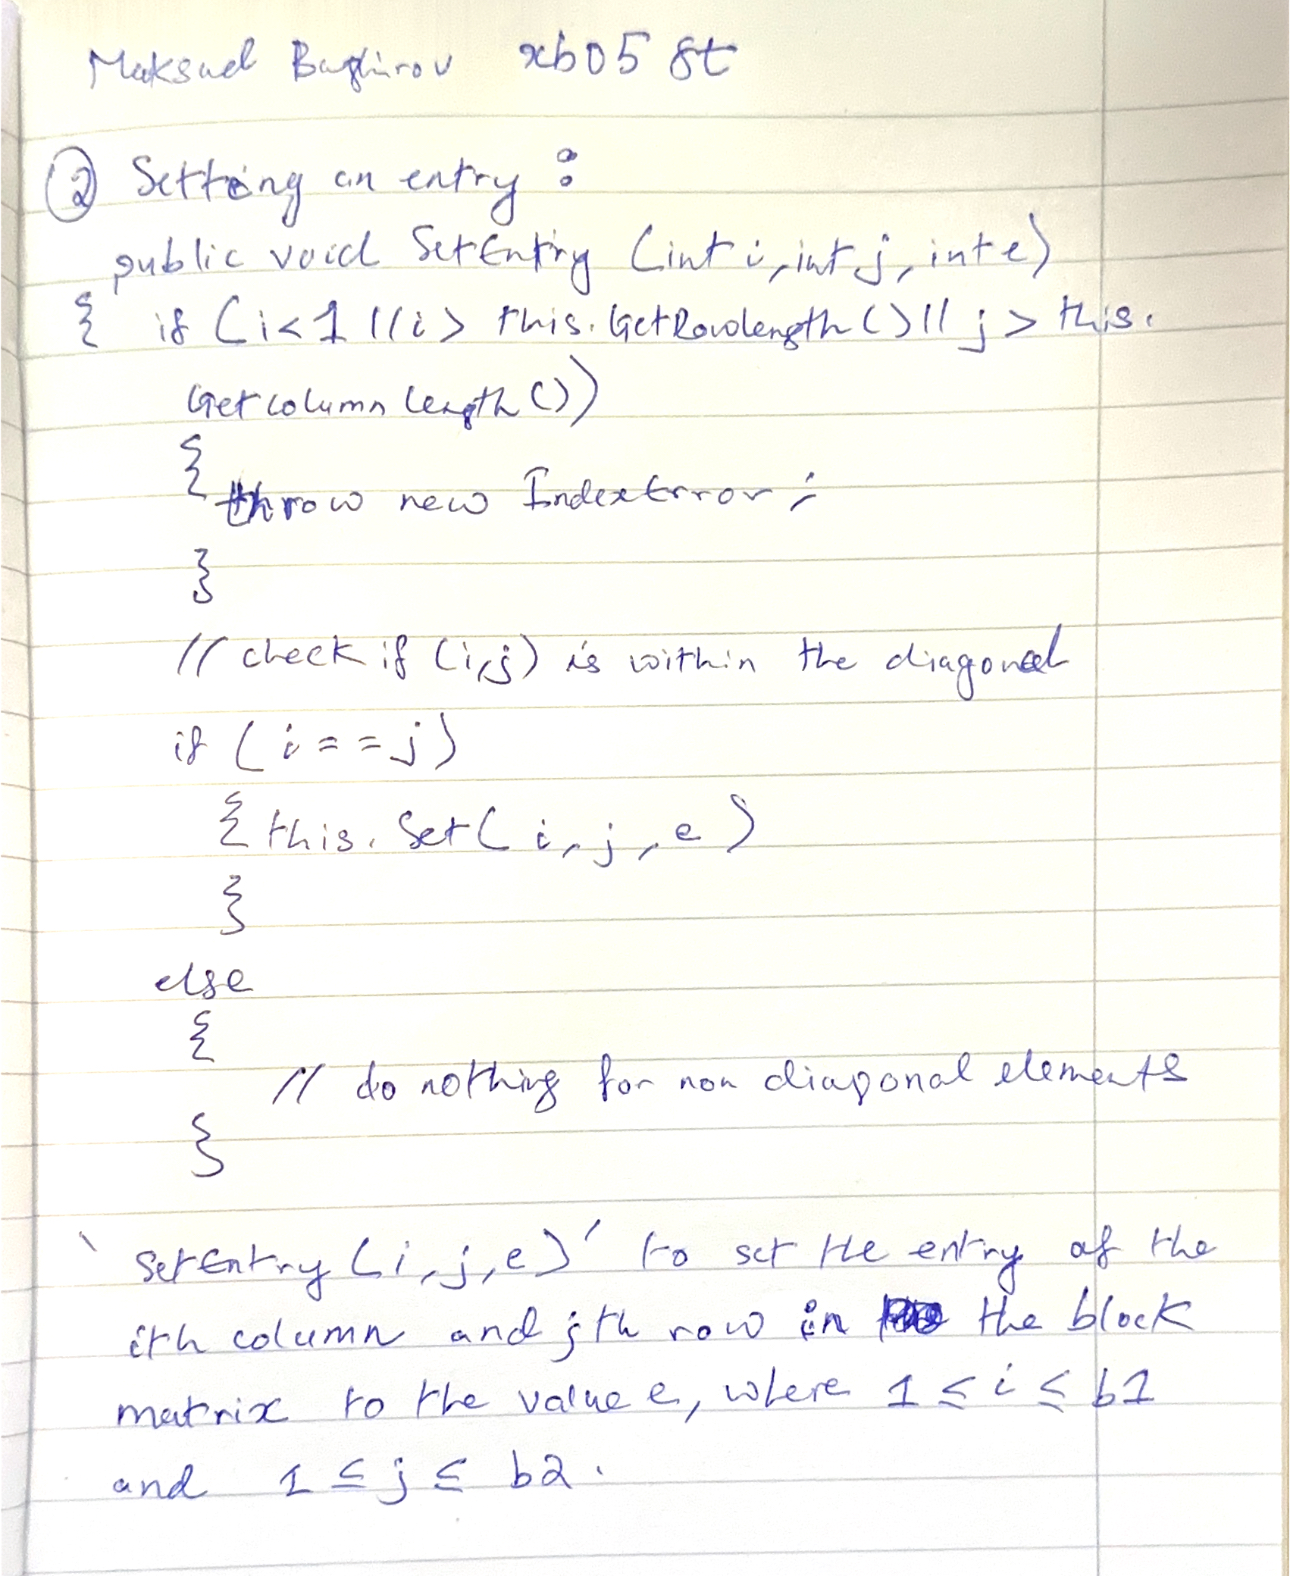 Maksud Baghirov xb05 8t
② Setting an entry :
public void SetEntry (int i, int j, int e)
{ if (i<1 || i> this.GetRowlength() || j > this.
Getcolumn length ())
{
throw new IndexError;
}
// check if (i,j) is within the diagonal
if (i==j)
{ this.Set(i, j, e)
}
else
{
// do nothing for non diagonal elements
}
` setEntry (i, j, e)' to set the entry of the
ith column and jth row in the block
matrix to the value e, where 1 ≤ i ≤ b1
and 1 ≤ j ≤ b2.